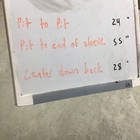 Pit to Pit 24 "
Pit to end of sleeve 35 "
Center down back 28 "